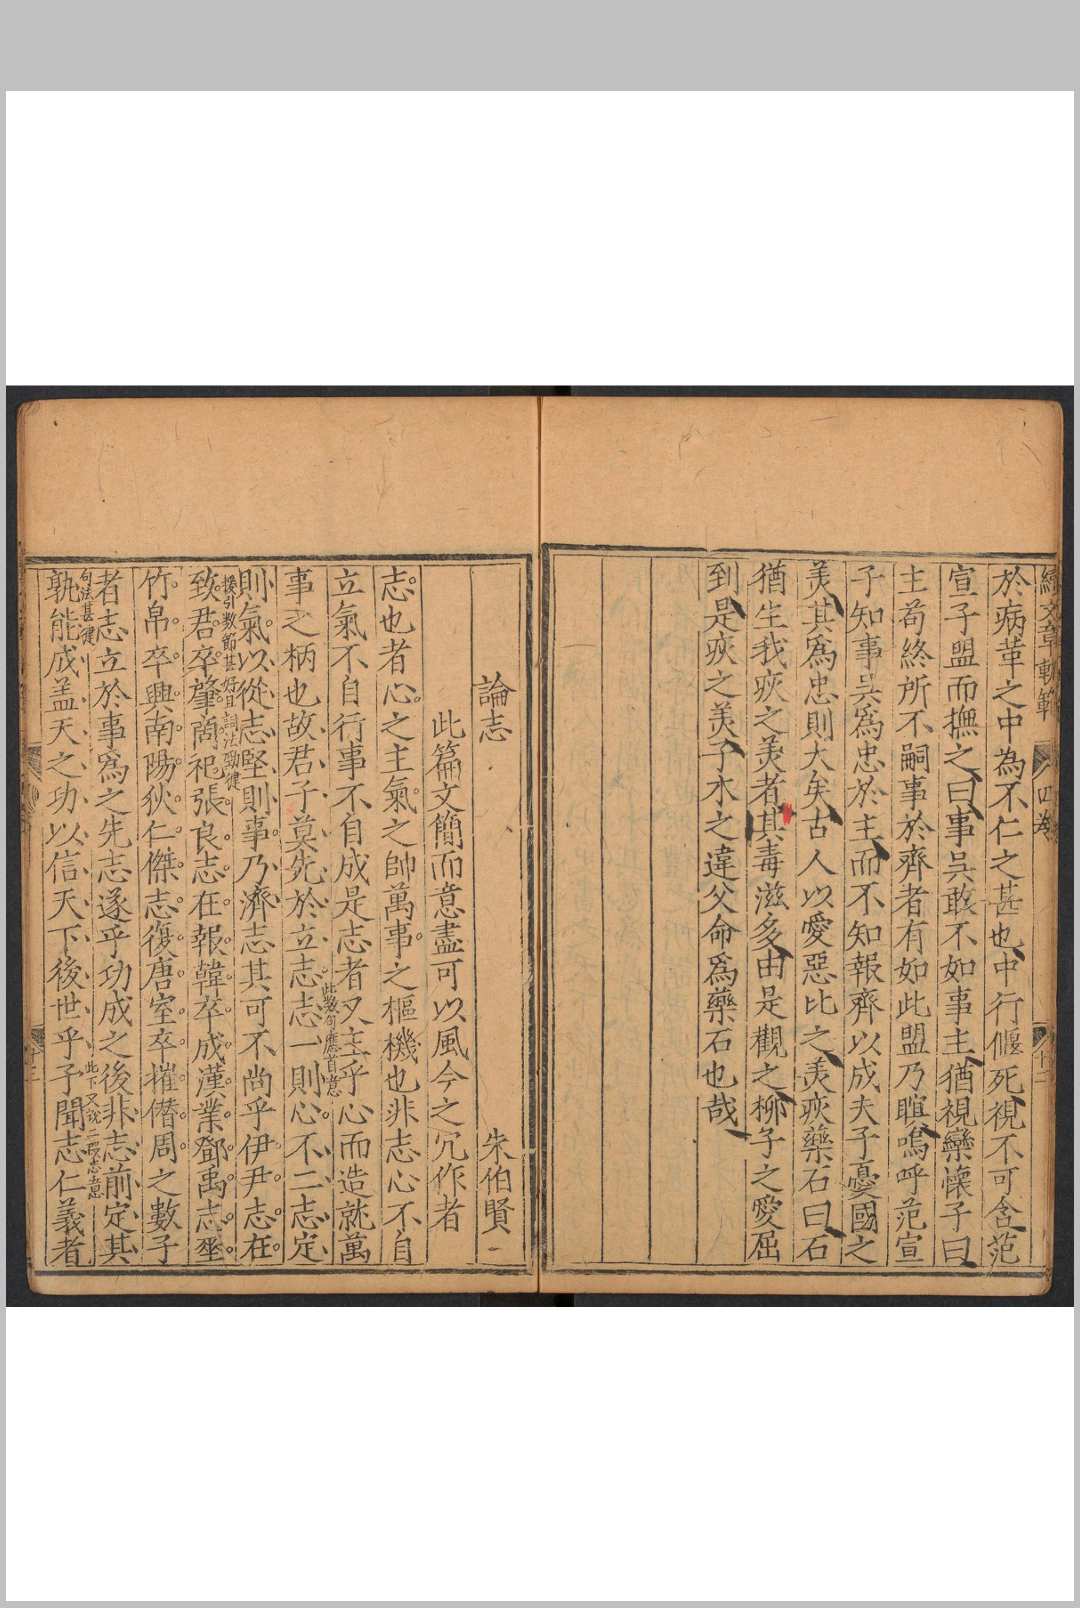 續文章軌範 四卷 十二
於病革之中為不仁之甚也中行偃死視不可含范
宣子盟而撫之曰事吳敢不如事主猶視欒懷子曰
主苟終所不嗣事於齊者有如此盟乃瞑嗚呼范宣
子知事吳爲忠於主而不知報齊以成夫子憂國之
羙其爲忠則大矣古人以愛惡比之羙疢藥石曰石
猶生我疢之羙者其毒滋多由是觀之柳子之愛屈
到是疢之羙子木之違父命爲藥石也哉
論志 朱伯賢
此篇文簡而意盡可以風今之冗作者
志也者心之主氣之帥萬事之樞機也非志心不自
立氣不自行事不自成是志者又主乎心而造就萬
事之柄也故君子莫先於立志志一則心不二志定
此數句應首意
則氣以從志堅則事乃濟志其可不尚乎伊尹志在
致君卒肇商祀張良志在報韓卒成漢業鄧禹志埀
換引數節甚好且詞法勁健
竹帛卒興南陽狄仁傑志復唐室卒摧僭周之數子
者志立於事爲之先志遂乎功成之後非志前定其
孰能成盖天之功以信天下後世乎予聞志仁義者
句法甚健
此下又説二段志意
十三